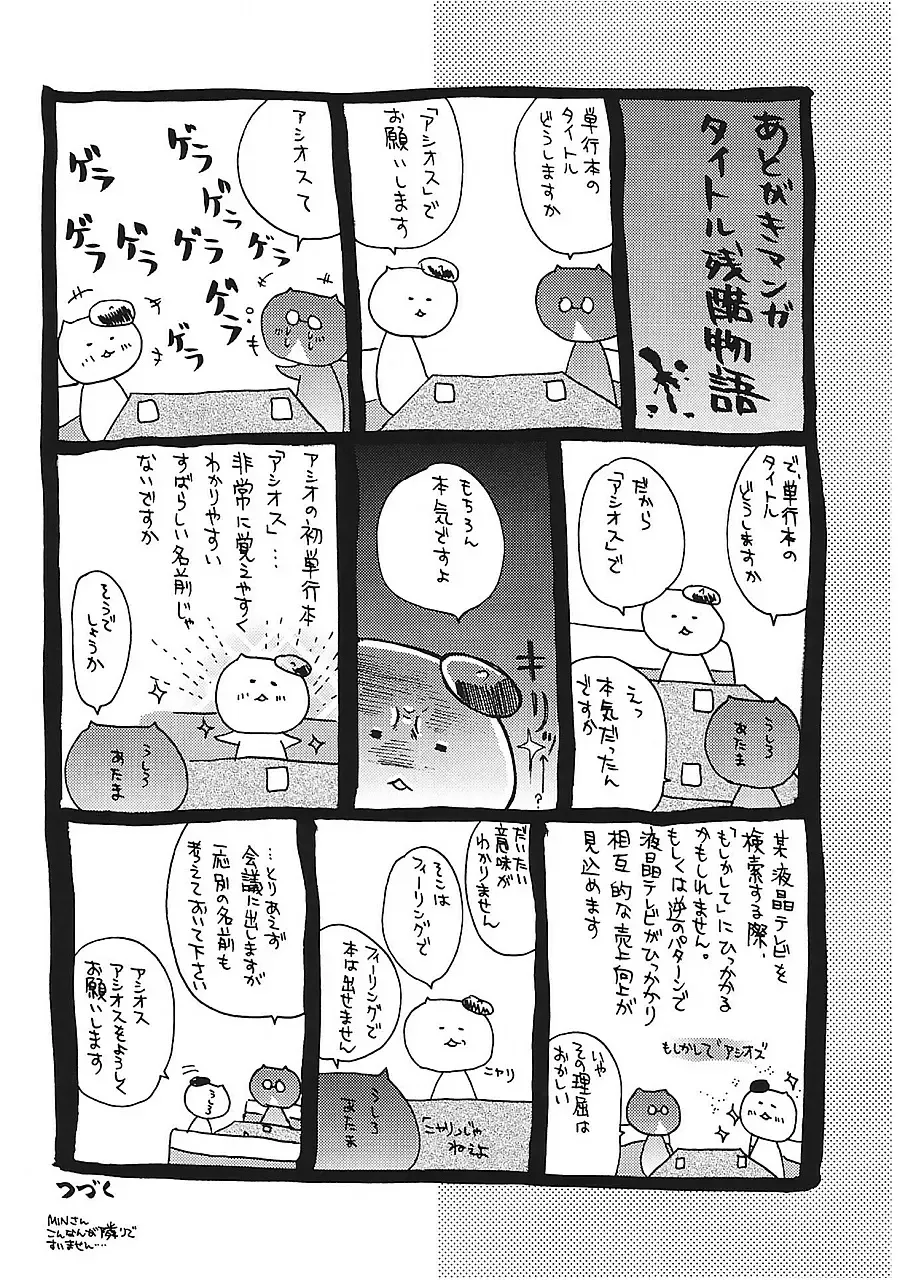 あとがきマンガ
タイトル残酷物語
単行本の
タイトル
どうしますか
「アシオス」で
お願いします
アシオスて
ゲラ
ゲラ
ゲラ
ゲラ
ゲラ
ゲラ
ゲラ
ゲラ
ゲラ
で、単行本の
タイトル
どうしますか
だから
「アシオス」で
えっ
本気だったん
ですか
うしろ
あたま
もちろん
本気ですよ
キリッ
?
アシオの初単行本
「アシオス」…
非常に覚えやすく
わかりやすい
すばらしい名前じゃ
ないですか
そうで
しょうか
うしろ
あたま
某液晶テレビを
検索する際、
「もしかして」にひっかかる
かもしれません。
もしくは逆のパターンで
液晶テレビがひっかかり
相互的な売上向上が
見込めます
もしかして"アシオズ
いや
その理屈は
おかしい
だいたい
意味が
わかりません
そこは
フィーリングで
ニヤリ
フィーリングで
本は出せません
うしろ
あたま
「ニヤリ」じゃ
ねぇよ
…とりあえず
会議に出しますが
一応別の名前も
考えておいて下さい
アシオス
アシオスをよろしく
お願いします
うしろ
つづく
MINさん
こんなんが隣りで
すいません…